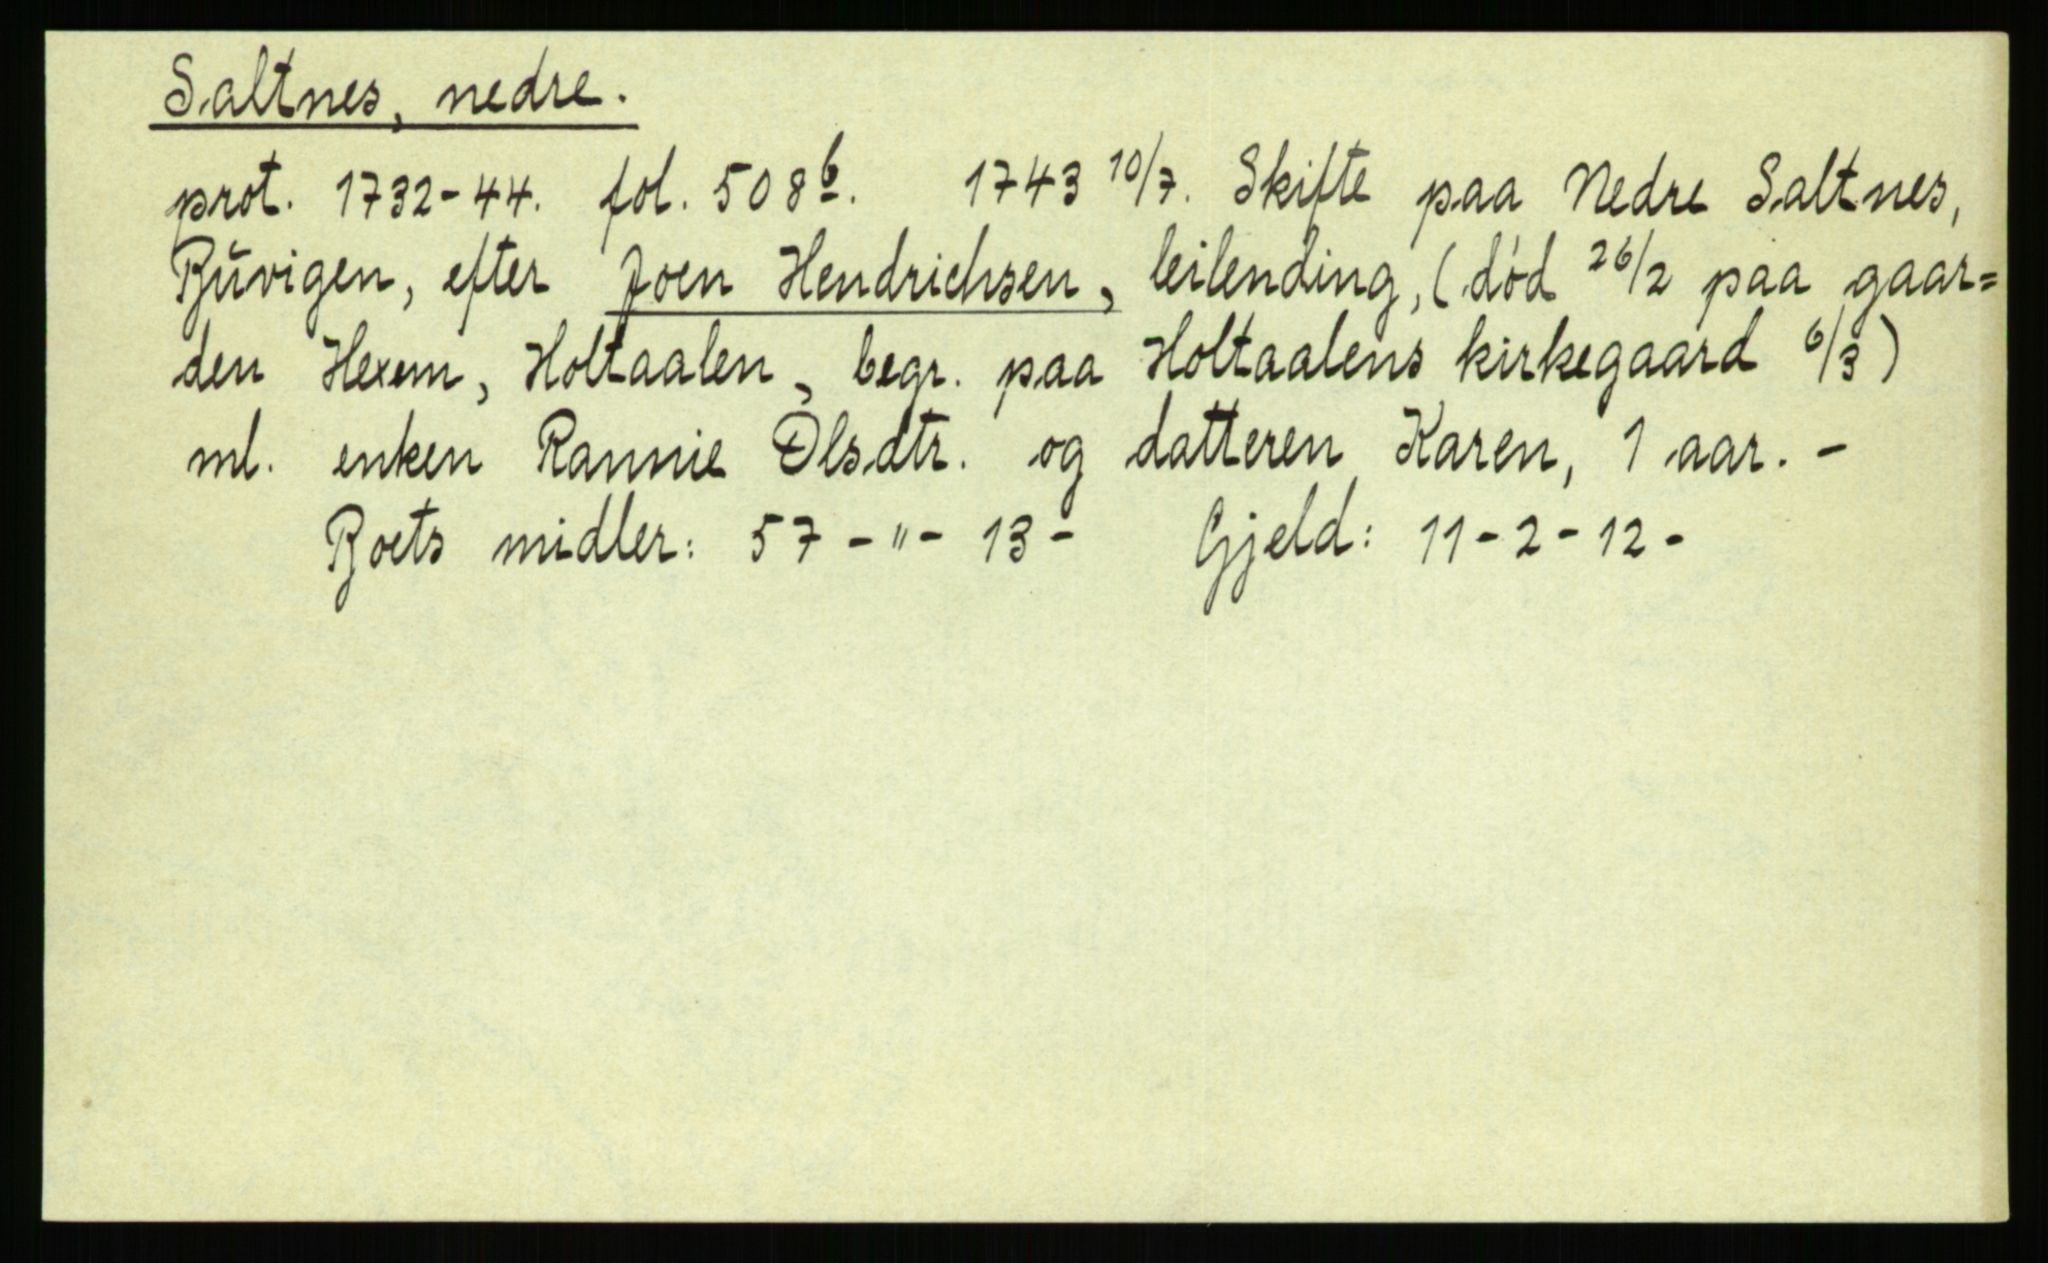 Saltnes, nedre.
prot. 1732-44. fol. 508b. 1743 10/7. Skifte paa Nedre Saltnes,
Büvigen, efter Joen Hendrichsen, leilending, (død 26/2 paa gaar=
den Hexem, Holtaalen, begr. paa Holtaalens kirkegaard 6/3)
ml. enken Rannie Olsdtr. og datteren Karen, 1 aar. -
Boets midler: 57 - " - 13 - Gjeld: 11 - 2 - 12 -